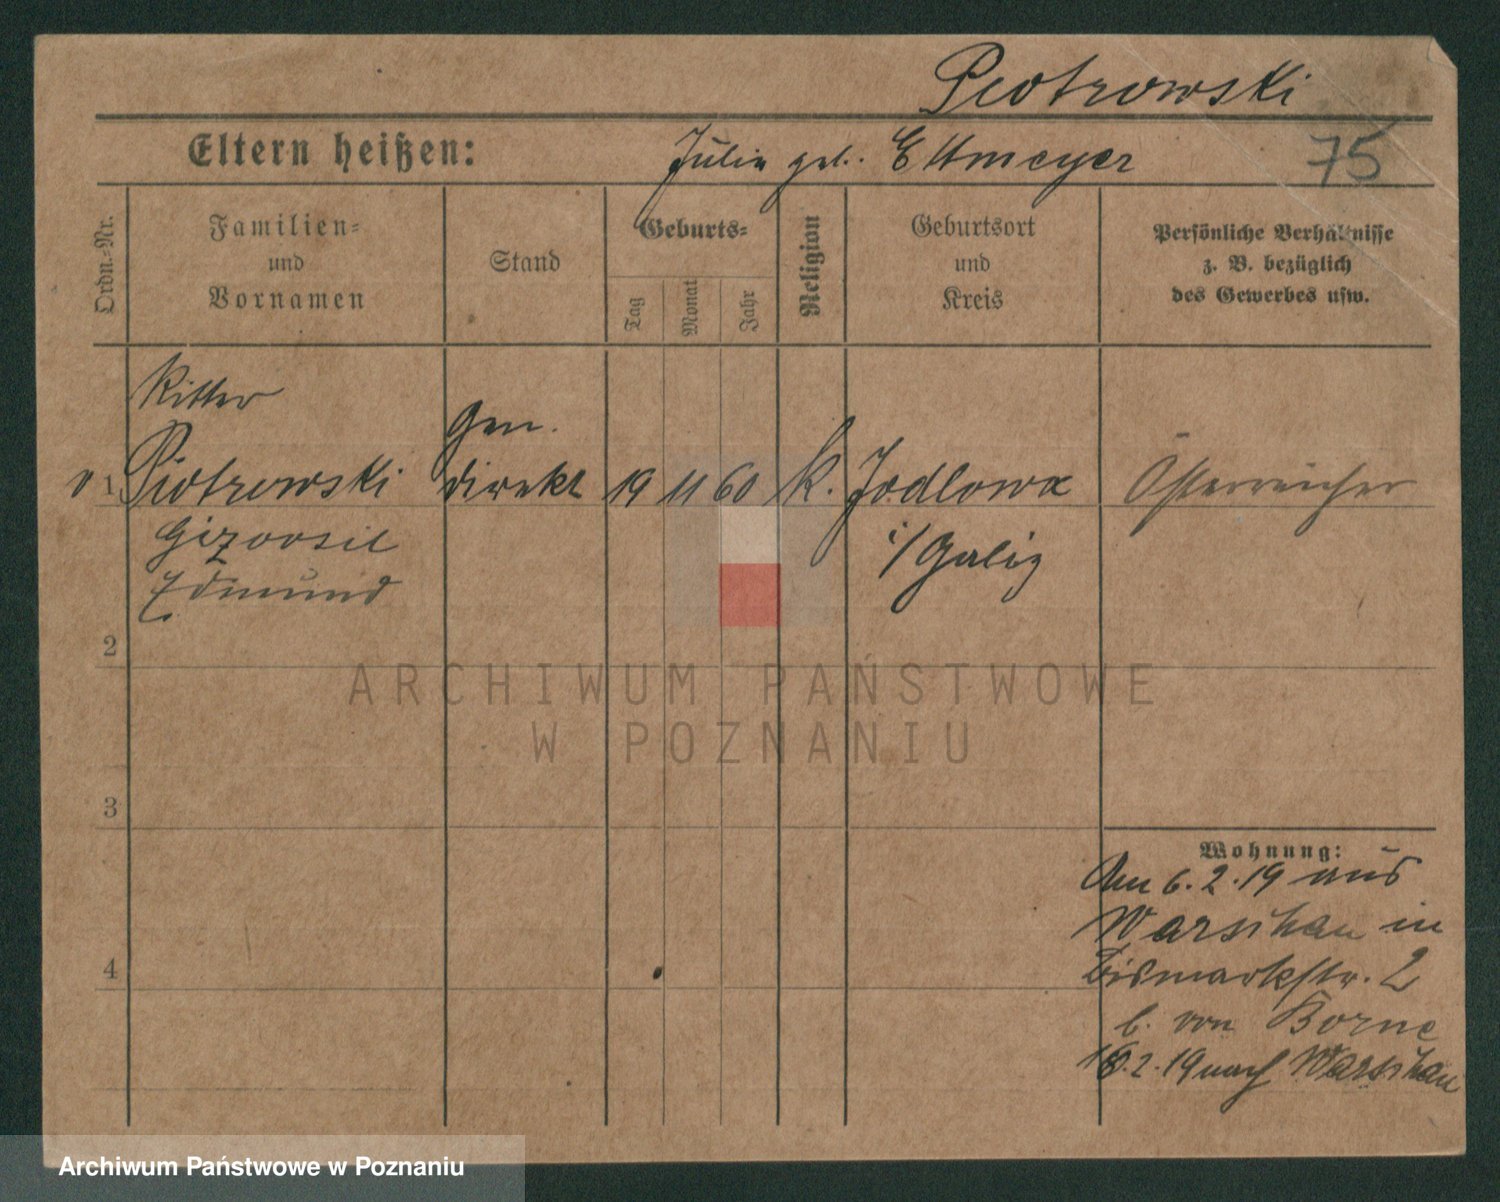 Piotrowski
Eltern heißen: Julie geb. Ettmeyer
75
Ordn.=Nr.
Familien=
und
Vornamen
Stand
Geburts=
Tag
Monat
Jahr
Religion
Geburtsort
und
Kreis
Persönliche Verhältnisse
z. B. bezüglich
des Gewerbes usw.
Ritter
Gen.
1 Piotrowski direkt 19 11 60 K. Jodlowa Österreicher
i/Galiz
Edmund
2
3
4
Wohnung:
Am 6.2.19 aus
Warschau in
Bismarkstr. 2
b. von Borne
2.19 nach Warschau
ARCHIWUM PAŃSTWOWE
W POZNANIU
Archiwum Państwowe w Poznaniu